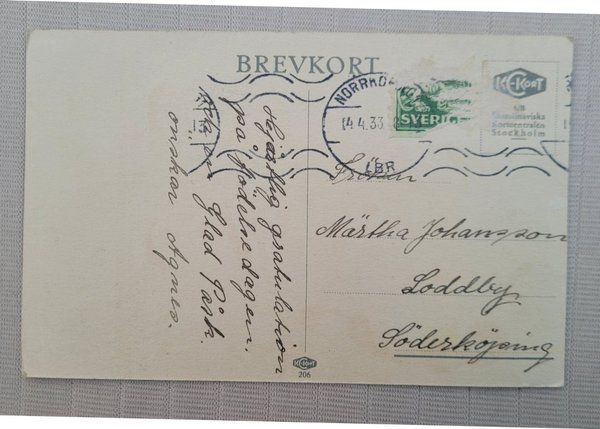 BREVKORT
NORRKÖ
14.4.33
LBR
SVERIGE
KCKORT
Skandinaviska
Kortcentralen
Stockholm
Hjärtlig gratulation
på födelsedagen.
Glad Påsk.
önskar Agnes.
Fröken
Märtha Johansson
Loddby
Söderköping
206